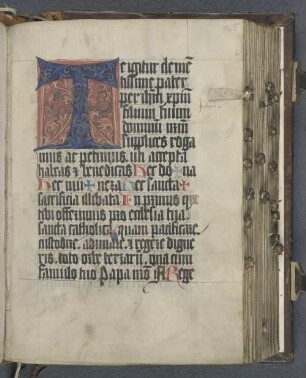 Te igitur cleme
tissime pater
per ihm xpm
filium tuum
dominum nrm
supplices roga
mus ac petimus. uti accepta
habeas & benedicas Hec do✝na
Hec mu✝nera Hec sancta✝
sacrificia illibata In primis que
tibi offerimus pro ecclesia tua
sancta catholica quam pacificare
custodire. adunare. & regere digne
ris. toto orbe terrarum. una cum
famulo tuo Papa nro N Rege